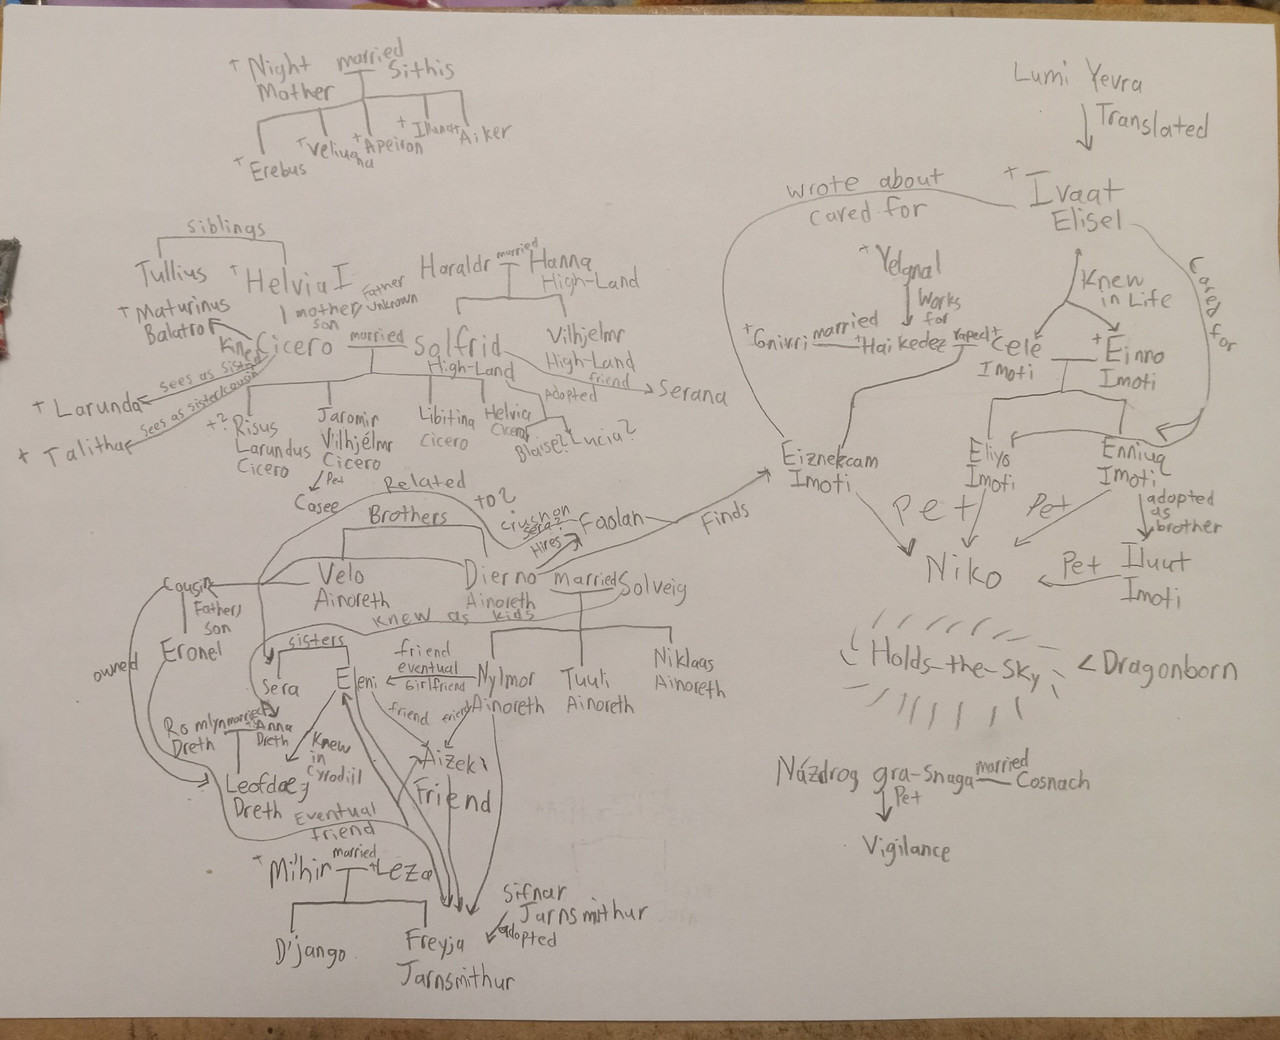 + Night Mother
married
Sithis
+ Erebus
+ Veliugna
+ Apeiron
+
Aiker
siblings
Tullius
+ Helvia I
+ Maturinus
Balatro
mother/
son
Father
unknown
Cicero
married
Solfrid
High-Land
Haraldr
married
Hanna
High-Land
Vilhjelmr
High-Land
friend
Serana
sees as sister
+ Larunda
sees as sister/cousin
+ Talitha
+? Risus
Larundus
Cicero
Jaromir
Vilhjélmr
Cicero
Pet
Casee
Libitina
Cicero
Helvia
Cicero
Adopted
Blaise?
Lucia?
Related
to?
Brothers
crush on
Sera?
Hires
Faolan
Finds
Cousin
Father/
son
Eronel
owned
Velo
Ainoreth
Dierno
Ainoreth
married
Solveig
knew as kids
sisters
Sera
Eleni
friend
eventual
Girlfriend
Nylmor
Ainoreth
Tuuli
Ainoreth
Niklaas
Ainoreth
Romlyn
Dreth
married
Anna
Dreth
Leofdaeg
Dreth
Knew
in
Cyrodiil
friend
friend
Aizek
Friend
Eventual
friend
+ Mi'hir
married
+ Leza
D'jango
Freyja
Jarnsmithur
Sifnar
Jarnsmithur
adopted
Lumi Yevra
Translated
+ Ivaat
Elisel
wrote about
cared for
Cared for
Knew
in Life
+ Yelgnal
Works
for
+ Gnivri
married
+ Haikedez
raped
+ Cele
Imoti
+ Einno
Imoti
Eiznekcam
Imoti
Eliyo
Imoti
Enniuq
Imoti
adopted
as
brother
Iluut
Imoti
Pet
Pet
Pet
Niko
Holds-the-Sky
< Dragonborn
Názdrog gra-Snaga
married
Cosnach
Pet
Vigilance